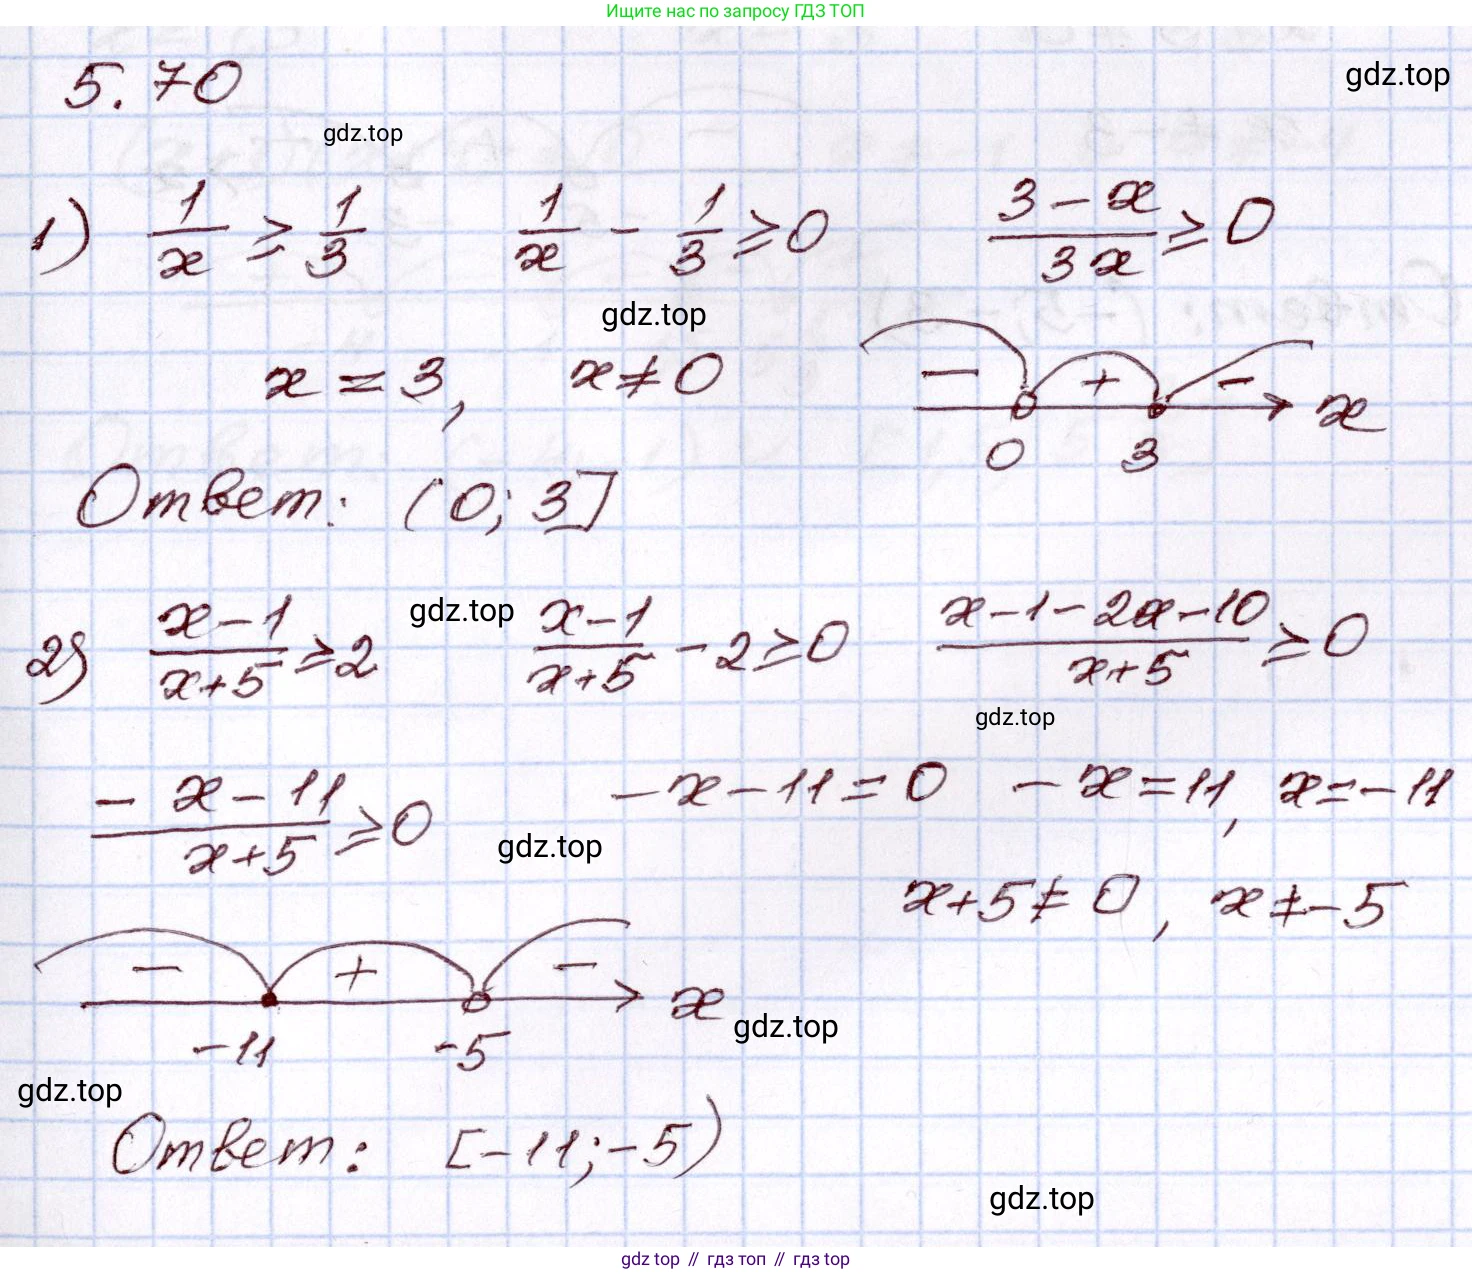 Ищите нас по запросу ГДЗ ТОП
5.70
gdz.top
gdz.top
1) 1/x ≥ 1/3    1/x - 1/3 ≥ 0    (3-x)/(3x) ≥ 0
gdz.top
x = 3, x ≠ 0
- + - x
0 3
Ответ: (0; 3]
2) (x-1)/(x+5) ≥ 2    (x-1)/(x+5) - 2 ≥ 0    (x-1-2x-10)/(x+5) ≥ 0
gdz.top
gdz.top
(-x-11)/(x+5) ≥ 0    -x-11=0    -x=11, x=-11
gdz.top
x+5≠0, x≠-5
- + - x
-11 -5
gdz.top
gdz.top
Ответ: [-11; -5)
gdz.top
gdz top // гдз топ // gdz top